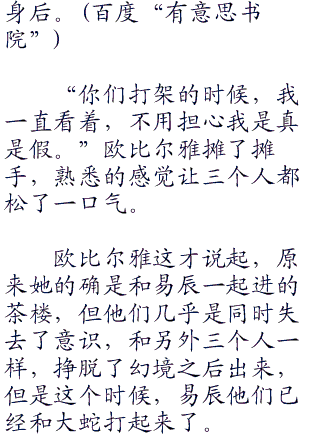 身后。(百度“有意思书
院”)
“你们打架的时候，我
一直看着，不用担心我是真
是假。”欧比尔雅摊了摊
手，熟悉的感觉让三个人都
松了一口气。
欧比尔雅这才说起，原
来她的确是和易辰一起进的
茶楼，但他们几乎是同时失
去了意识，和另外三个人一
样，挣脱了幻境之后出来，
但是这个时候，易辰他们已
经和大蛇打起来了。